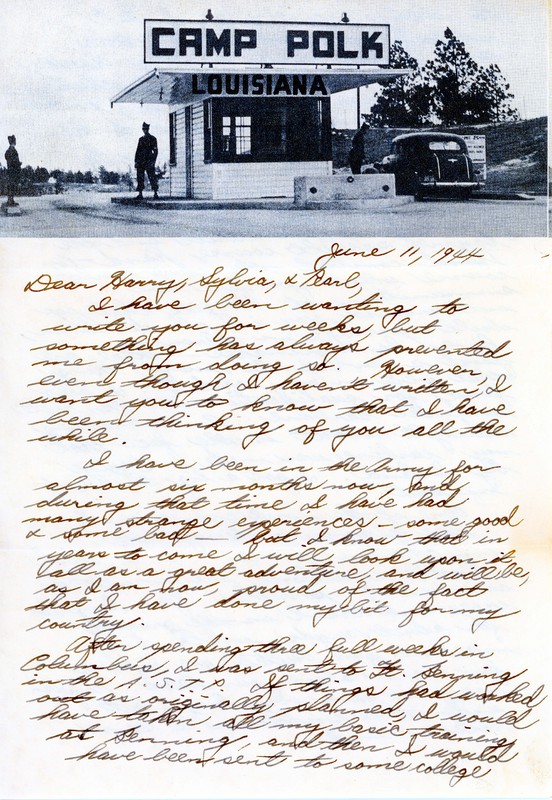 CAMP POLK
LOUISIANA
June 11, 1944
Dear Harry, Sylvia, & Pearl,
I have been wanting to
write you for weeks, but
something has always prevented
me from doing so. However,
even though I haven't written, I
want you to know that I have
been thinking of you all the
while.
I have been in the Army for
almost six months now, and
during that time I have had
many strange experiences - some good
& some bad - but I know that in
years to come I will look upon it
all as a great adventure, and will be,
as I am now, proud of the fact
that I have done my bit for my
country.
After spending three full weeks in
Columbus, I was sent to Ft. Benning
in the A.S.T.P. If things had worked
out as originally planned, I would
have taken all my basic training
at Benning, and then I would
have been sent to some college